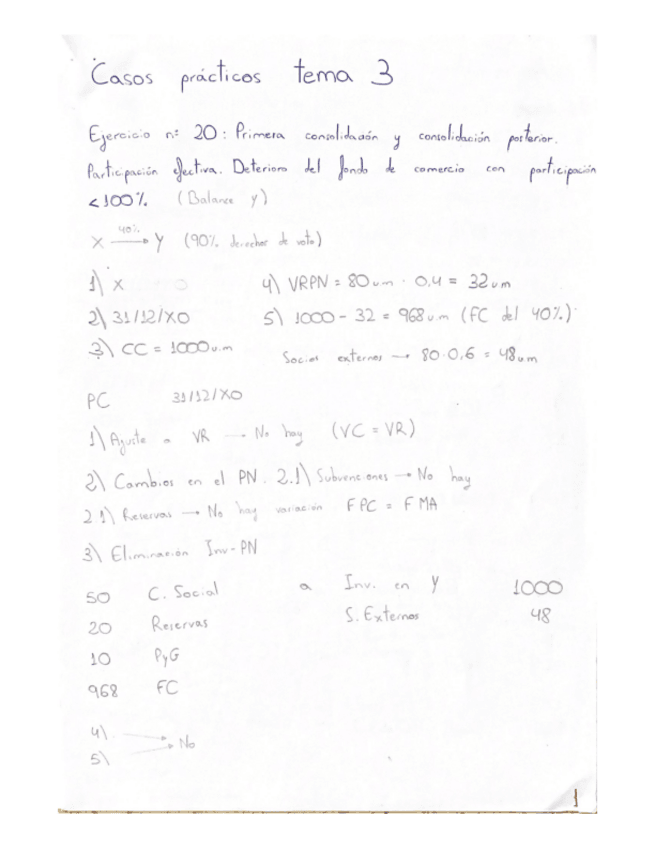 Casos prácticos tema 3
Ejercicio nº 20: Primera consolidación y consolidación posterior.
Participación efectiva. Deterioro del fondo de comercio con participación
<100% (Balance y)
40%
X → Y (90% derechos de voto)
1) X
2) 31/12/X0
3) CC = 1000 u.m
4) VRPN = 80 um · 0,4 = 32 um
5) 1000 - 32 = 968 u.m (FC del 40%)
Socios externos → 80·0,6 = 48 um
PC 31/12/X0
1) Ajuste a VR → No hay (VC = VR)
2) Cambios en el PN. 2.1) Subvenciones → No hay
2.1) Reservas → No hay variación FPC = FMA
3) Eliminación Inv-PN
50 C. Social a Inv. en Y 1000
20 Reservas S. Externos 48
10 PyG
968 FC
4)
5) → No
1